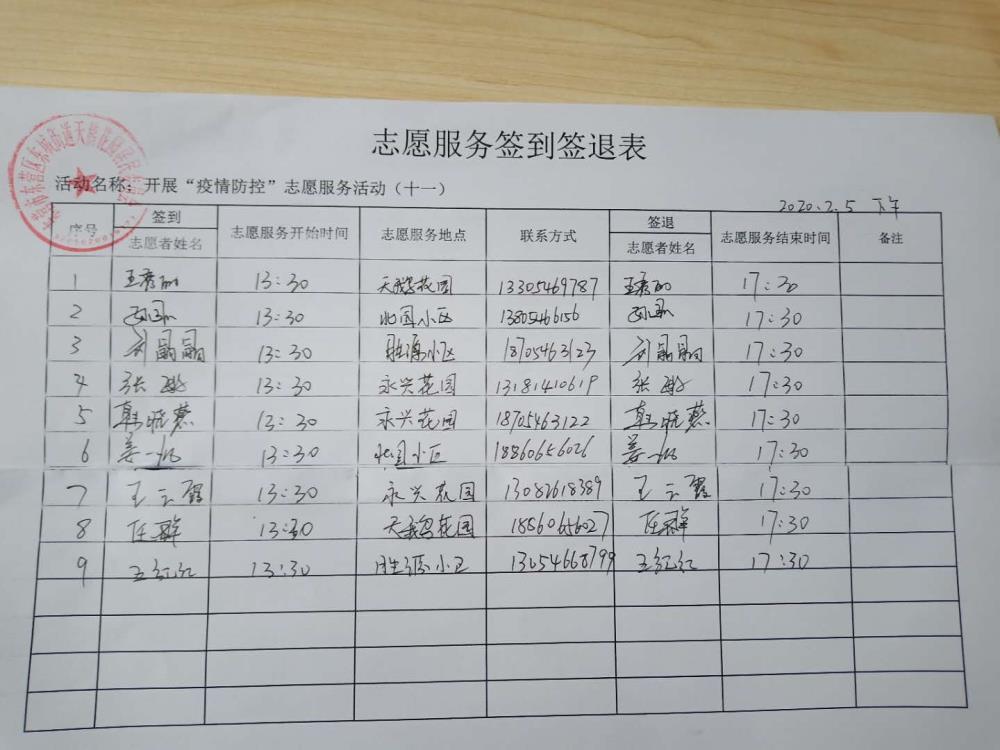 志愿服务签到签退表
活动名称：开展“疫情防控”志愿服务活动（十一）
2020.2.5 下午
序号 签到 志愿者姓名 志愿服务开始时间 志愿服务地点 联系方式 签退 志愿者姓名 志愿服务结束时间 备注
1 13:30 天鹅花园 13305469787 17:30
2 13:30 北国小区 13805466156 17:30
3 刘晶晶 13:30 胜源小区 18705463123 刘晶晶 17:30
4 张 13:30 永兴花园 13181410619 张 17:30
5 韩晓慧 13:30 永兴花园 18705463122 韩晓慧 17:30
6 姜一帆 13:30 北国小区 18860656026 姜一帆 17:30
7 王云霞 13:30 永兴花园 13082618389 王云霞 17:30
8 任群 13:30 天鹅花园 18560656027 任群 17:30
9 王红红 13:30 胜源小区 13054668799 王红红 17:30